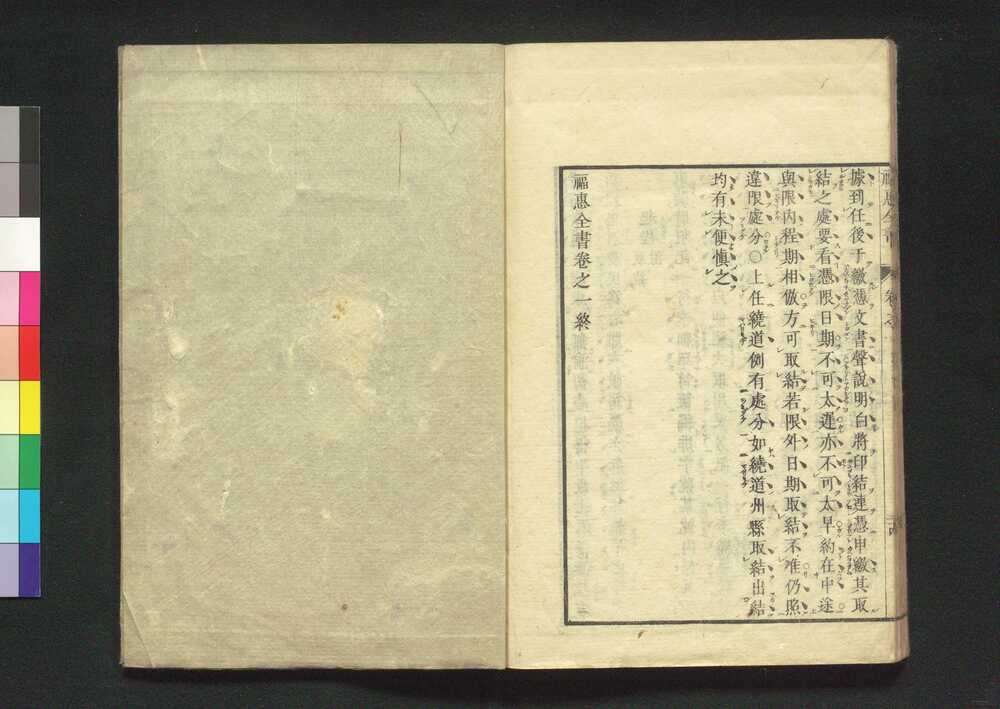 據到任後于繳憑文書聲說明白將印結連憑申繳其取
結之處要看憑限日期不可太遲亦不可太早約在中途
與限內程期相倣方可取結若限外日期取結不准仍照
違限處分○上任繞道例有處分如繞道州縣取結出結
均有未便慎之
福惠全書卷之一終